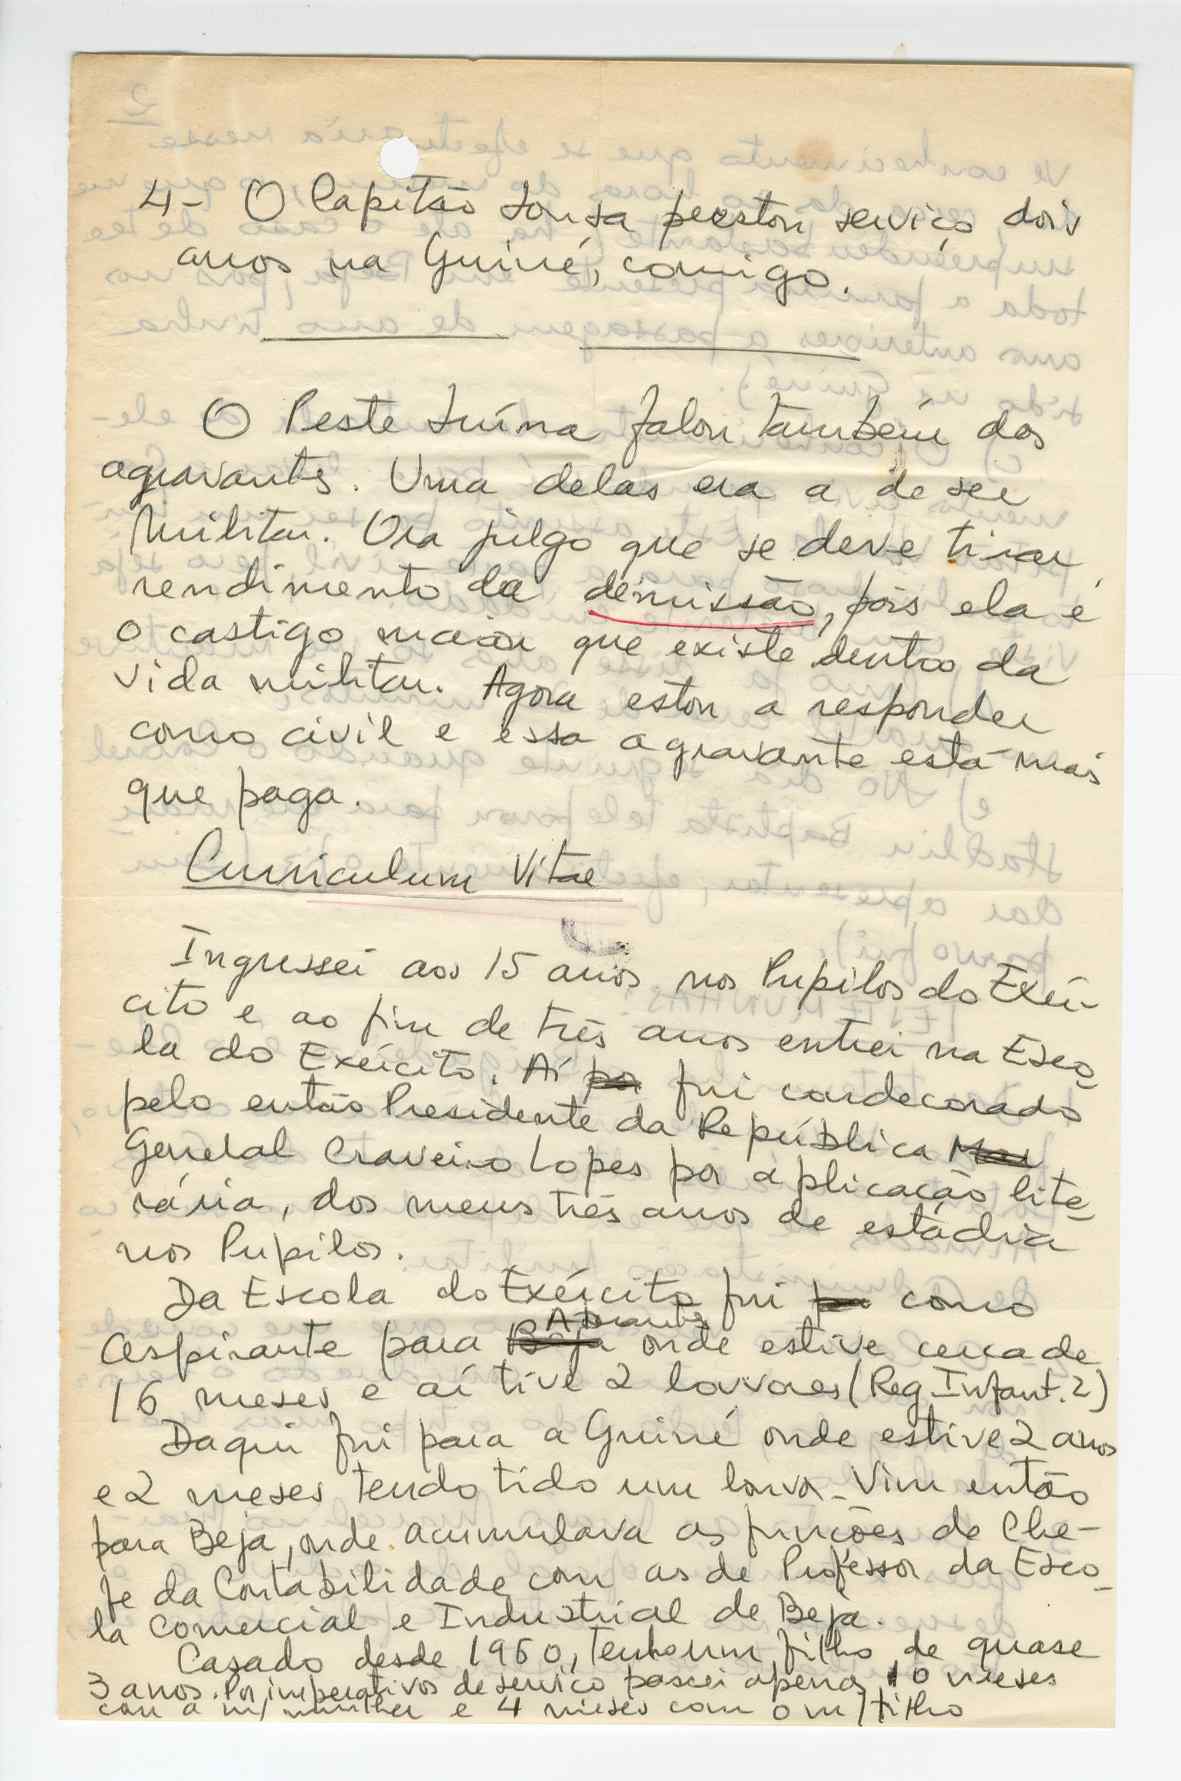 4- O Capitão Sousa prestou serviço dois
anos na Guiné, comigo.
O Peste Suína falou também dos
agravantes. Uma delas era a de ser
Militar. Ora julgo que se deve tirar
rendimento da demissão, pois ela é
o castigo maior que existe dentro da
vida militar. Agora estou a responder
como civil e essa agravante está mais
que paga.
Curriculum Vitae
Ingressei aos 15 anos nos Pupilos do Exér-
cito e ao fim de três anos entrei na Esco-
la do Exército. Aí fui condecorado
pelo então Presidente da República
General Craveiro Lopes por aplicação lite-
rária, dos meus três anos de estádia
nos Pupilos.
Da Escola do Exército fui como
Abrantes
Aspirante para Beja onde estive cerca de
16 meses e aí tive 2 louvores (Reg. Infant. 2)
Daqui fui para a Guiné onde estive 2 anos
e 2 meses tendo tido um louvor. Vim então
para Beja, onde acumulava as funções de Che-
fe da Contabilidade com as de Professor da Esco-
la Comercial e Industrial de Beja.
Casado desde 1960, tenho um filho de quase
3 anos. Por imperativos de serviço passei apenas 10 meses
com a m/ mulher e 4 meses com o m/ filho